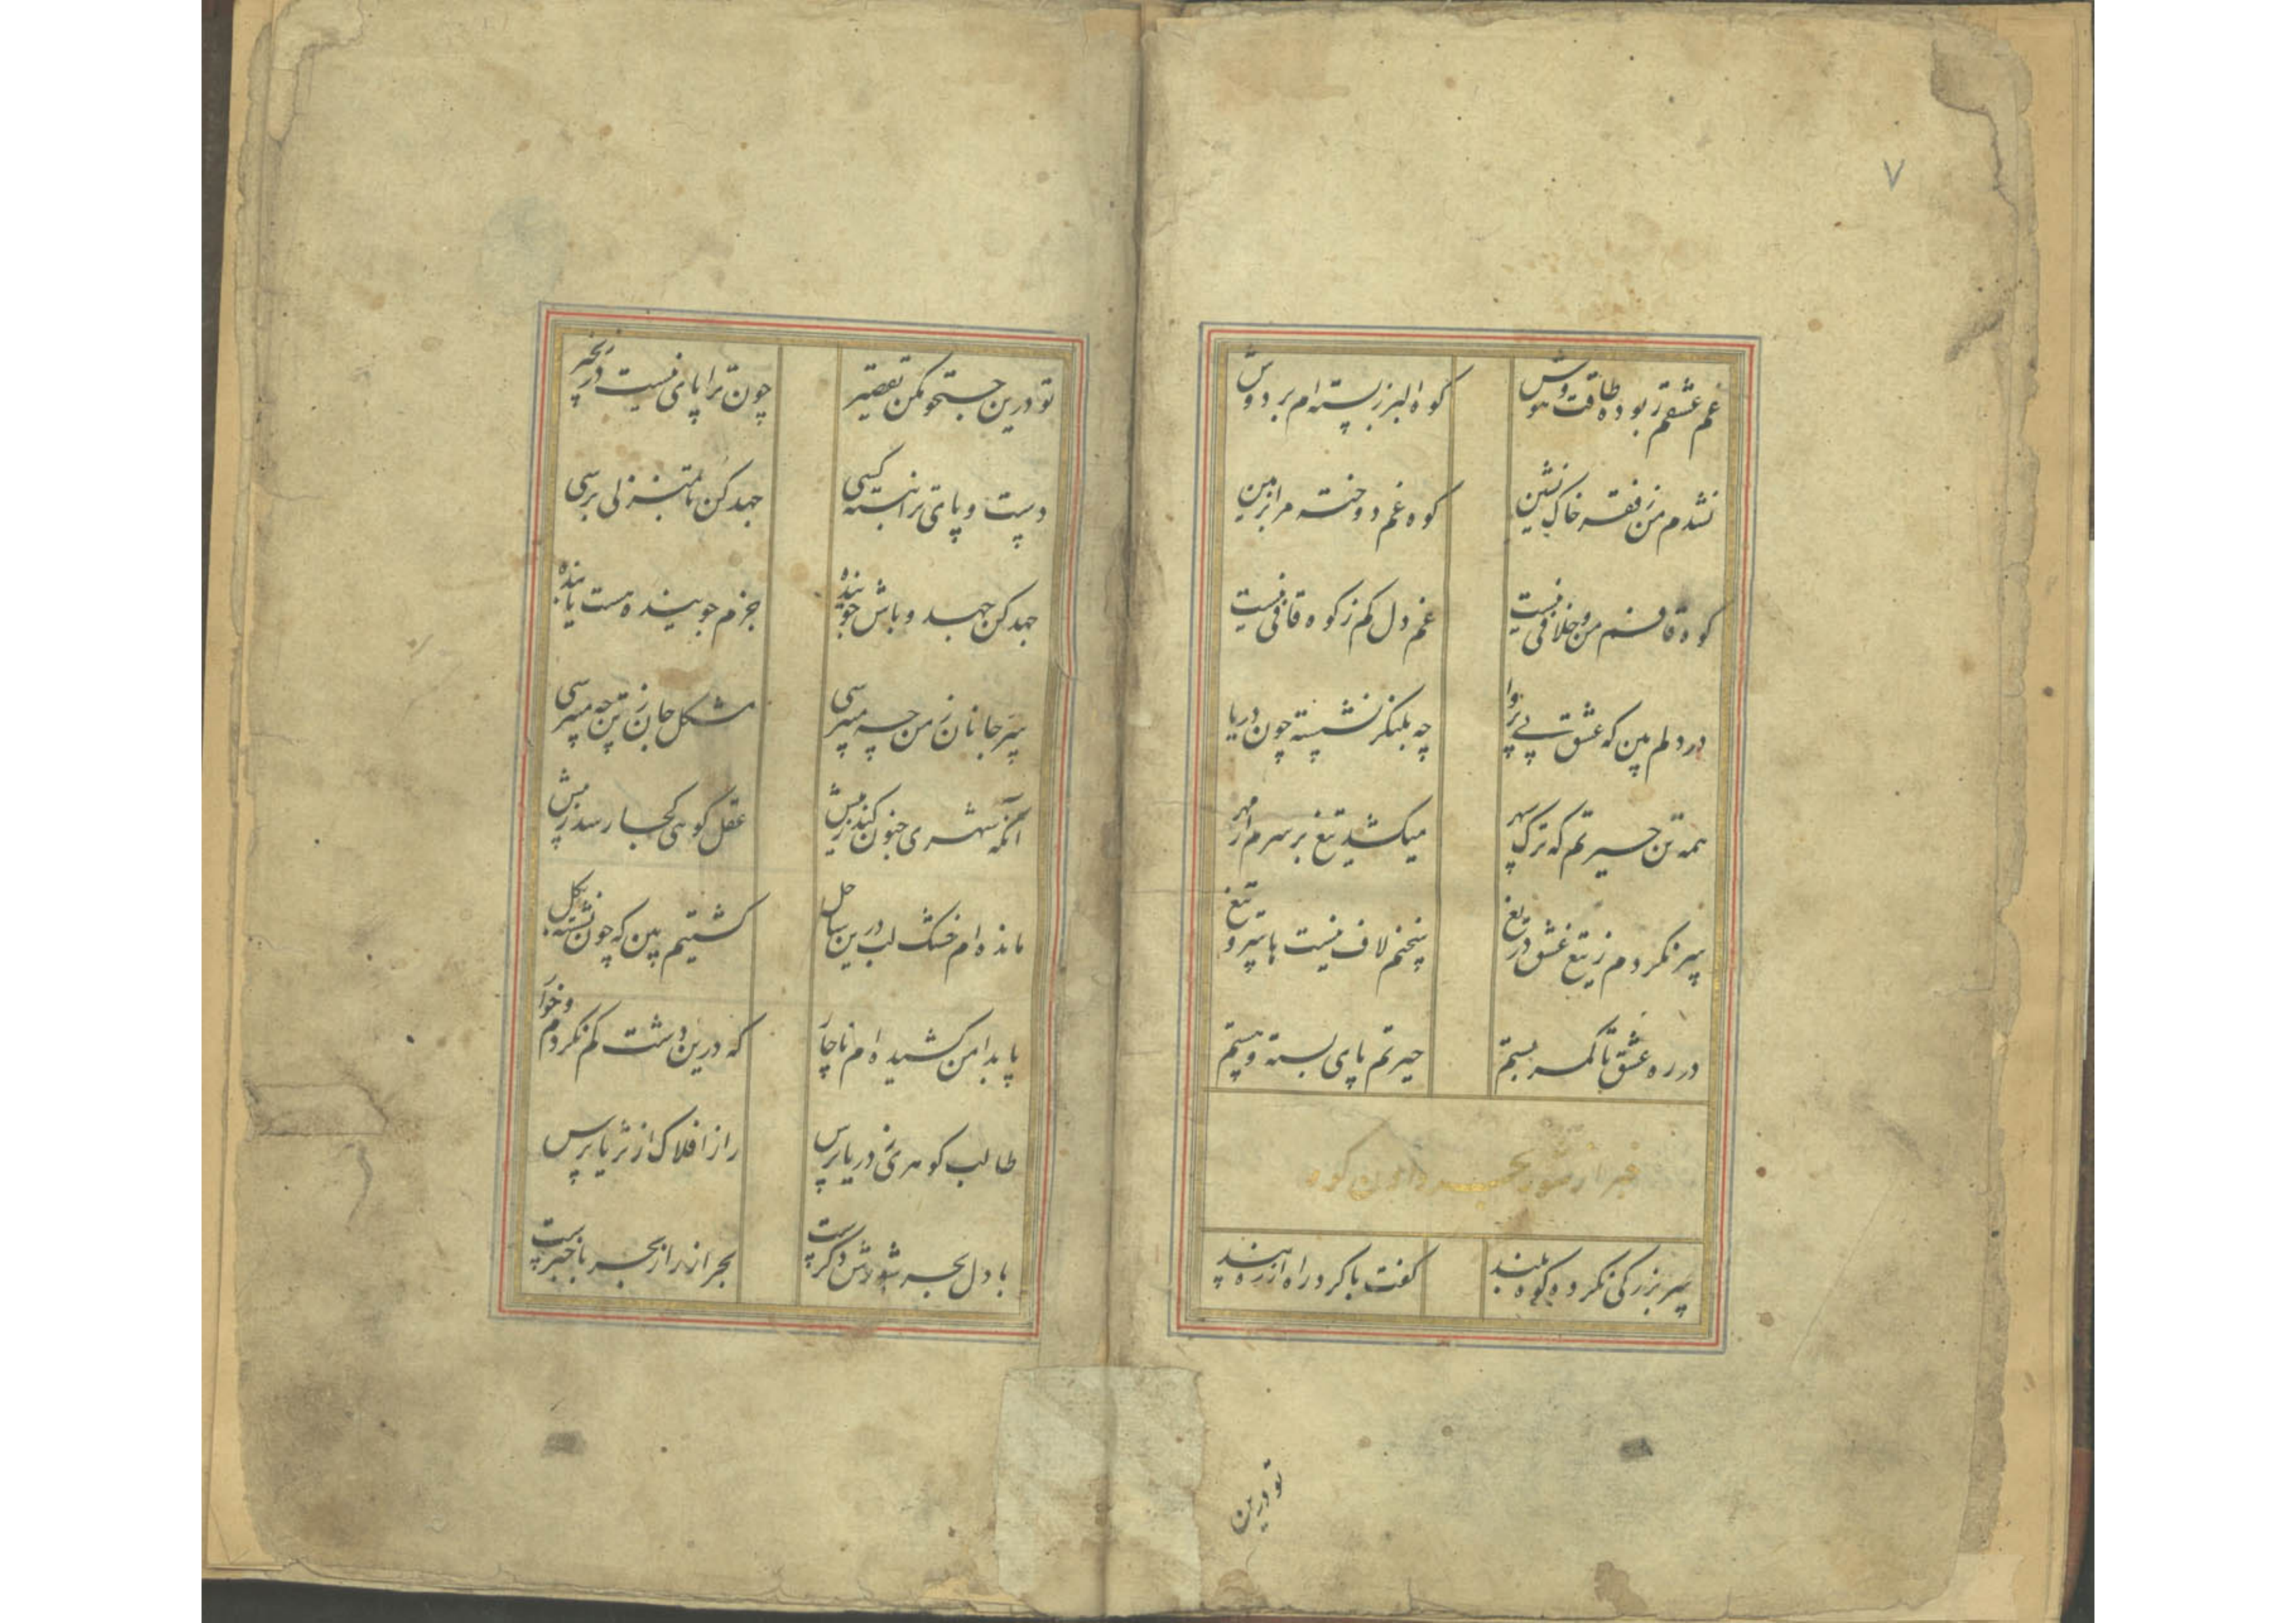 ۷
غم عشقم ربوده طاقت و هوش کوه البرز بسته ام بر دوش
نشدم من ز فقر خاک نشین کوه غم دوخته مرا بزمین
کوه قافم من و خلافی نیست غم دل کم ز کوه قافی نیست
در دلم بین که عشق بی پروا چه بلنکر نشسته چون دریا
همه تن حیرتم که ترک سپهر میکشد تیغ بر سرم از مهر
سپر نکردم ز تیغ عشق دریغ لاف نیست با سپر و تیغ
در ره عشق تا کمر بستم حیرتم پای بسته و دستم
خبر از شور بحر دادن کوه
سر بزرکی نکرد کوه بلند کفت با کرد راه از ره پند
تو درین
تو درین جستجو مکن تقصیر چون ترا پای نیست در زنجیر
دست و پای ترا نبسته کسی جهد کن تا بمنزلی برسی
جهد کن جهد و باش جوینده جزم جوینده هست یابنده
سر جانان ز من چه میپرسی مشکل جان ز تن چه میپرسی
آنکه شهری جنون کند زبرش عقل کوهی کجا رسد
مانده ام خشک لب درین ساحل کشتیم بین که چون نشسته بکل
پا بدامن کشیده ام ناچار که درین دشت کم نکردم خوار
طالب کوهری ز دریا پرس راز افلاک از ثریا پرس
با دل بحر شورش دکرست بحر از راز بحر با خبرست